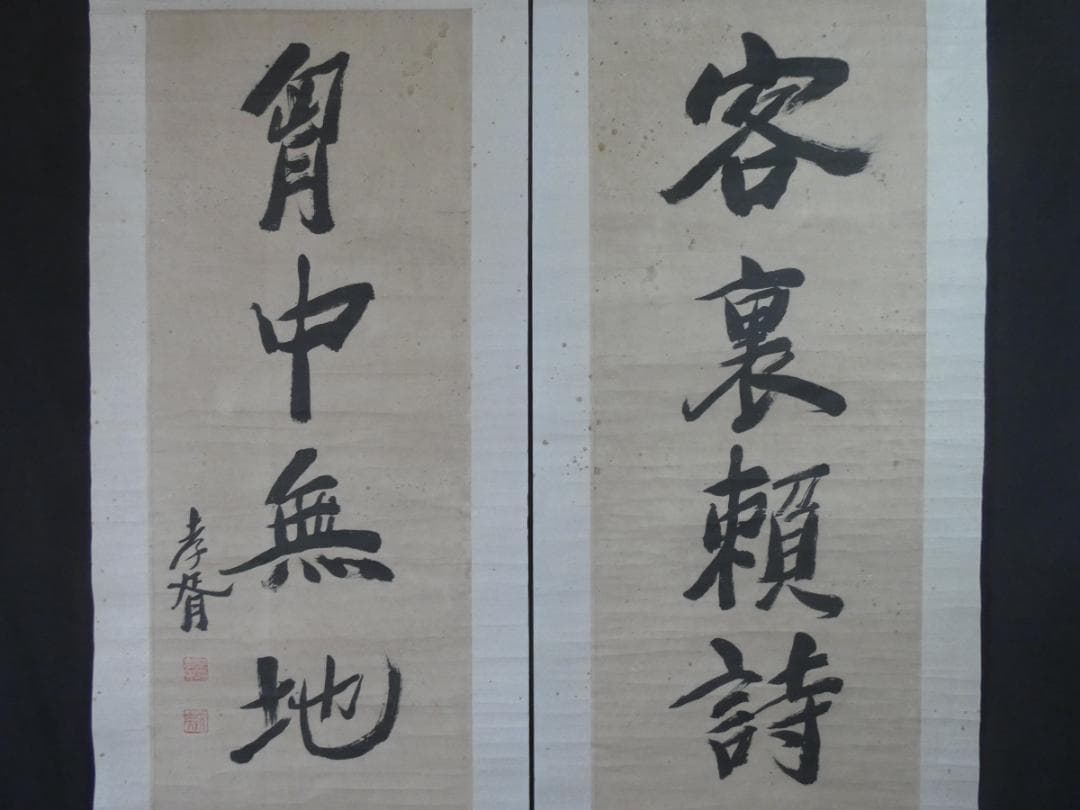 客裏賴詩
胷中無地
孝胥